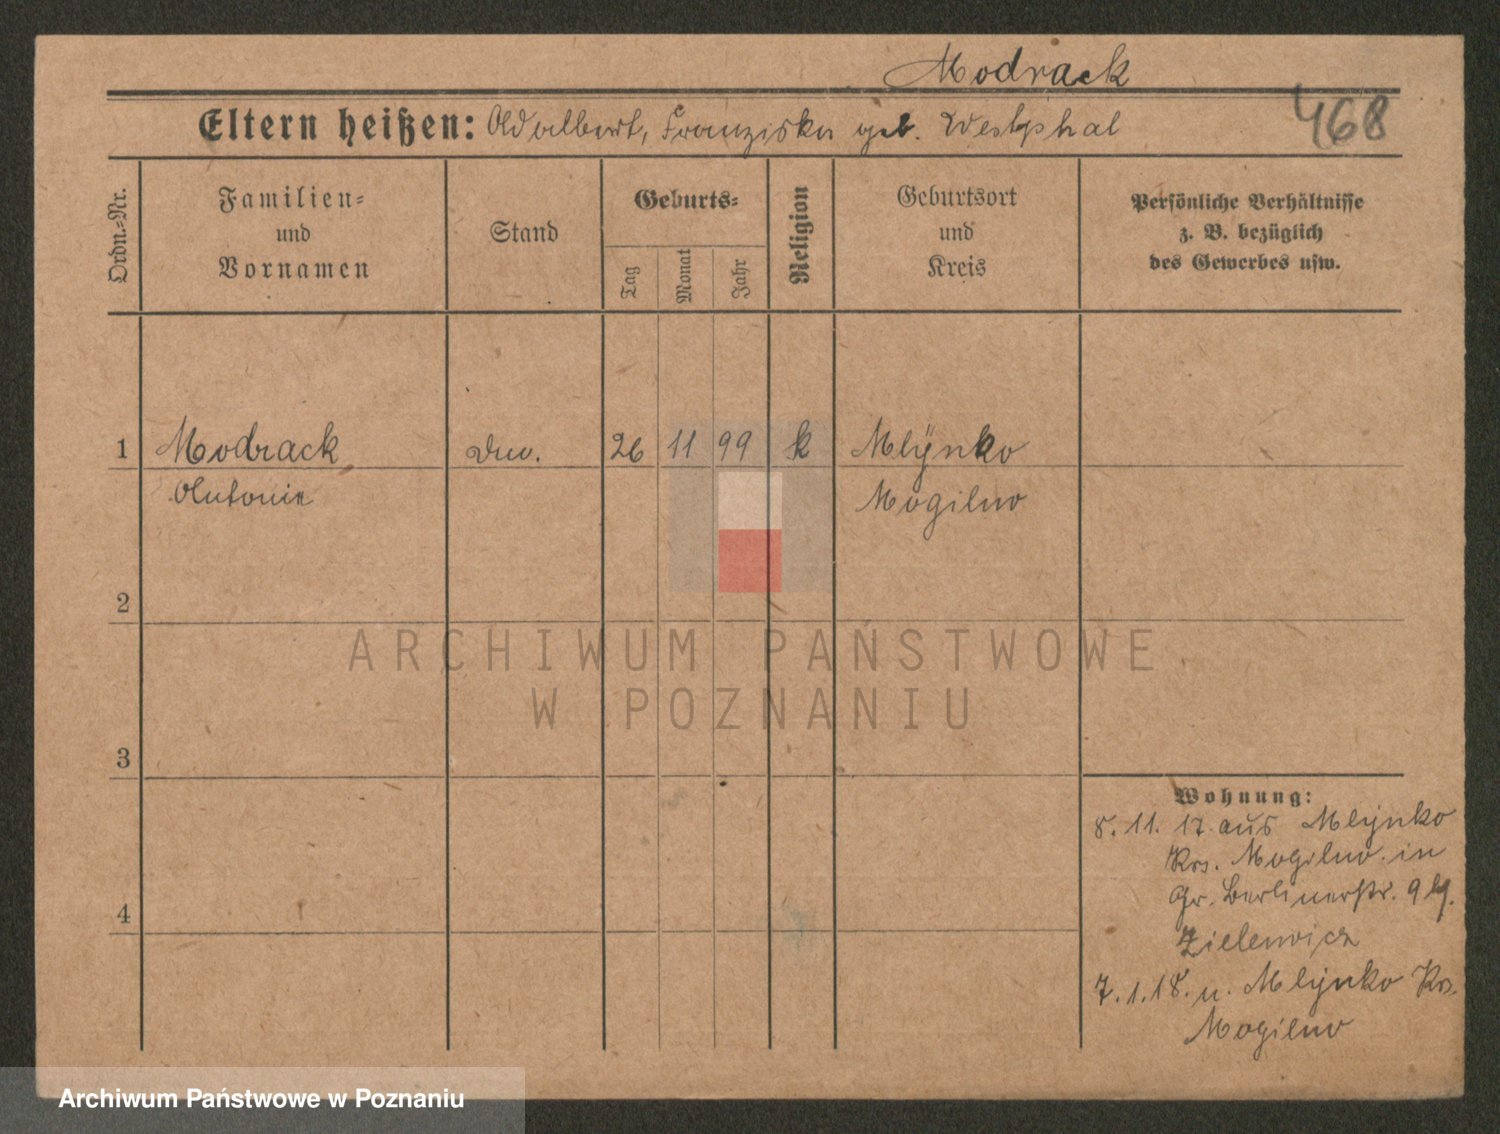 Modrack
468
Eltern heißen: Adalbert, Franziska geb. Westphal
Ordn.-Nr.
Familien-
und
Vornamen
Stand
Geburts-
Tag
Monat
Jahr
Religion
Geburtsort
und
Kreis
Persönliche Verhältnisse
z. B. bezüglich
des Gewerbes usw.
1 Modrack 26 11 99 k Mlÿnko
Antonie Mogilno
2
ARCHIWUM PAŃSTWOWE
W POZNANIU
3
Wohnung:
8. 11. 17. aus Mlÿnko
Krs. Mogilno in
Gr. Berlinerstr. 9 b.
Zielewicz
4
7. 1. 18. n. Mlÿnko Krs.
Mogilno
Archiwum Państwowe w Poznaniu